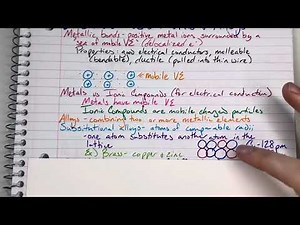 Metallic bonds - positive metal ions surrounded by a
sea of mobile VE⁻ (delocalized e⁻)
Properties: good electrical conductors, malleable
(bendable), ductile (pulled into thin wire)
mobile VE⁻
Metals vs Ionic Compounds (for electrical conduction)
Metals have mobile VE⁻
Ionic Compounds are mobile charged particles
Alloys - combining two or more metallic elements
Substitutional alloys - atoms of comparable radii
one atom substitutes another atom in the
lattice
-128 pm
Ex) Brass - copper & zinc